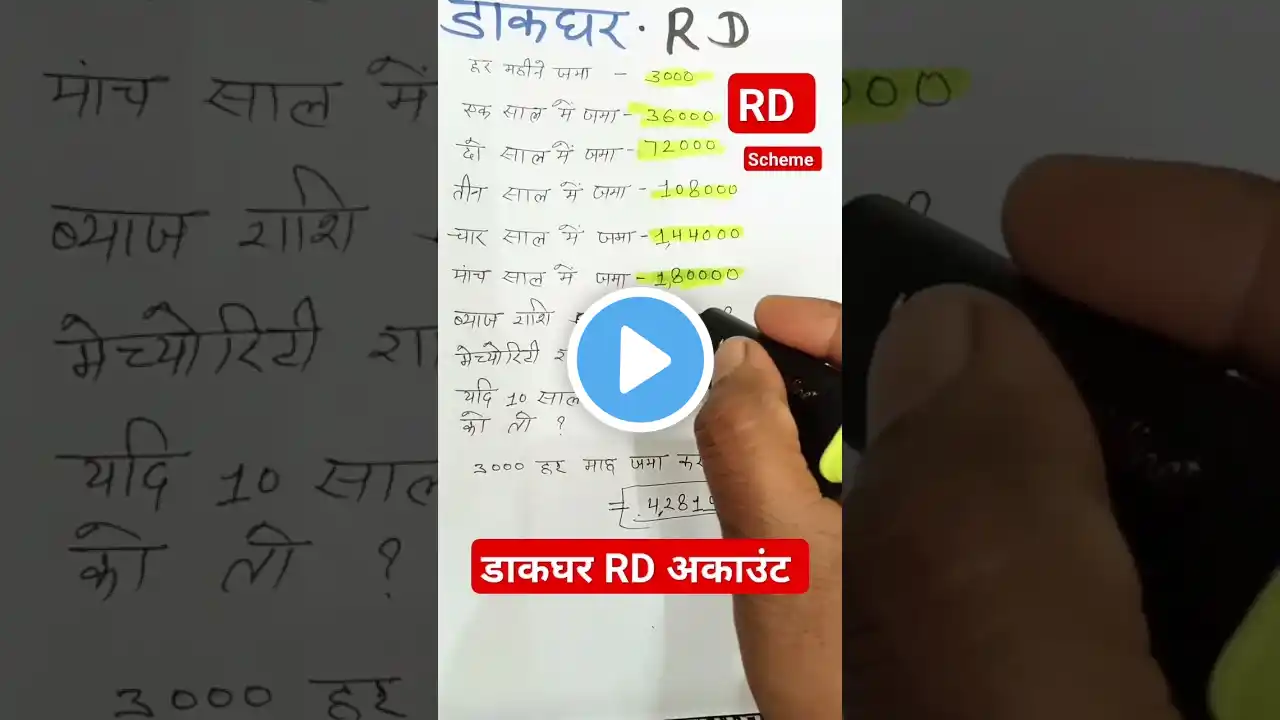 डाकघर · RD
हर महीने जमा - 3000
एक साल में जमा - 36000
दो साल में जमा - 72000
तीन साल में जमा - 108000
चार साल में जमा - 1,44000
पांच साल में जमा - 1,80000
ब्याज राशि
मेच्योरिटी
यदि 10 साल
को तो ?
3000 हर माह जमा
= 4,281
RD
Scheme
डाकघर RD अकाउंट
पांच साल में
000
ब्याज राशि
मेच्योरिटी
यदि 10 साल
को तो ?
3000 हर